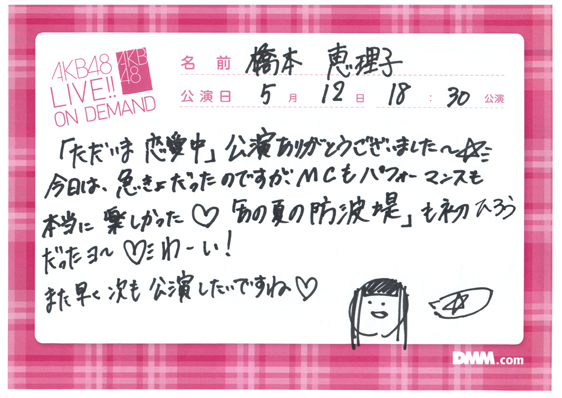 AKB48
LIVE!!
ON DEMAND
AKB
48
名前 橋本 恵理子
公演日 5月 12日 18:30 公演
「ただいま 恋愛中」公演ありがとうございました〜☆ミ
今日は、急きょだったのですが、MCもパフォーマンスも
本当に 楽しかった♡「あの夏の防波堤」も初ひろう
だったヨ〜♡ミ わーい!
また早く次も公演したいですね♡
DMM.com